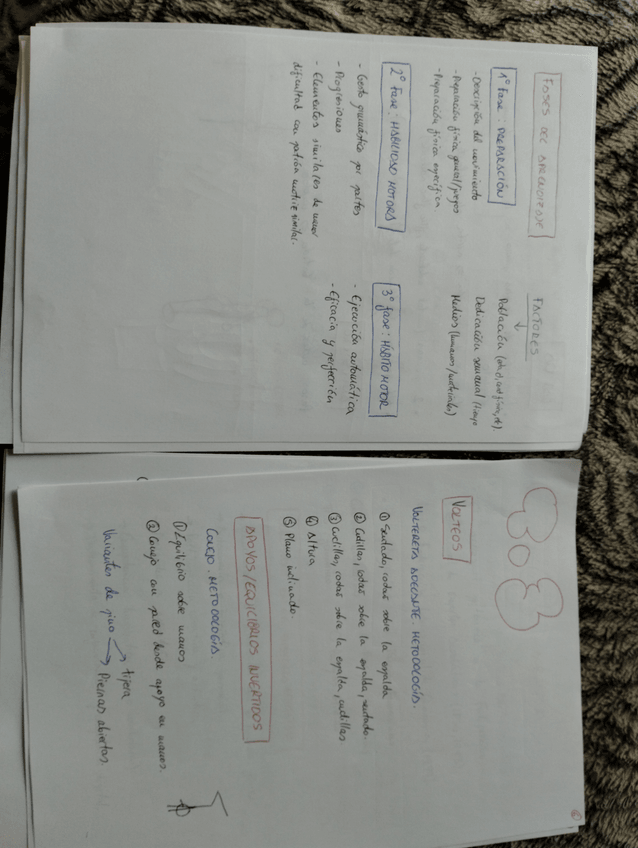 FASES DEL APRENDIZAJE
1º Fase: PREPARACIÓN
- Descripción del movimiento
- Preparación física general/juegos
- Preparación física específica.
2º Fase: HABILIDAD MOTORA
- Gesto gimnástico por partes
- Progresiones
- Elementos similares de menor
dificultad con patrón motriz similar.
FACTORES
↓
Población (edad, cond física, etc)
Dedicación semanal (tiempo
Medios (humanos/materiales)
3º fase: HÁBITO MOTOR
- Ejecución automática
- Eficacia y perfección
VOLTEOS
VOLTERETA ADELANTE. METODOLOGÍA.
① Sentado, rodar sobre la espalda
② Cuclillas, rodar sobre la espalda, sentado.
③ Cuclillas, rodar sobre la espalda, cuclillas
④ Altura
⑤ Plano inclinado.
APOYOS/EQUILIBRIOS INVERTIDOS
CONEJO. METODOLOGÍA.
① Equilibrio sobre manos
② Conejo con pared desde apoyo en manos.
Variantes de pino → tijera
→ Piernas abiertas.